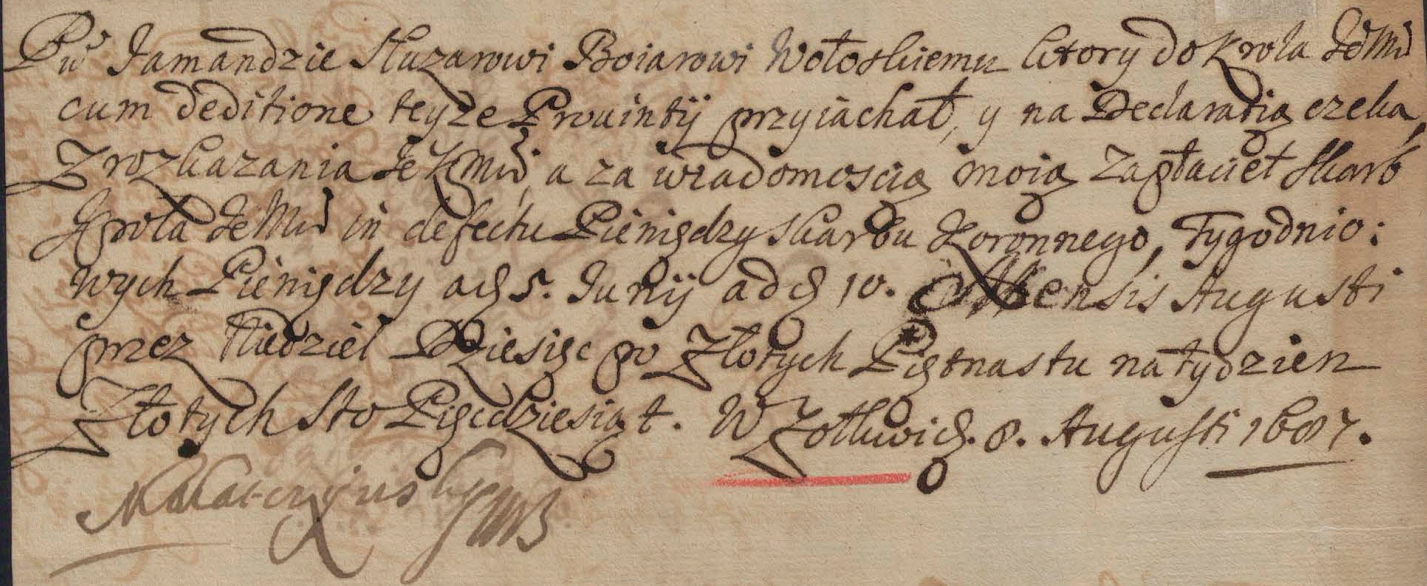 Pu Jamandzie Sluzarowi Boiarowi Wołoskiemu ktory do Krola JeMći
cum deditione teyze Prouintij przyiachał, y na Declaratią czeka,
Z rozkazania JeKMći, a za wiadomoscią moią Zapłacieł Skarb
Krola JeMći in defectu Pieniędzy skarbu Koronnego, Tygodnio:
wych Pieniędzy ad 5. Junij ad d 10. Mensis Augusti
przez Niedziel Dziesięc po Złotych Piętnastu na tydzien
Złotych Sto Pięcdziesiąt. W Zołkwi d. 8. Augusti 1687.